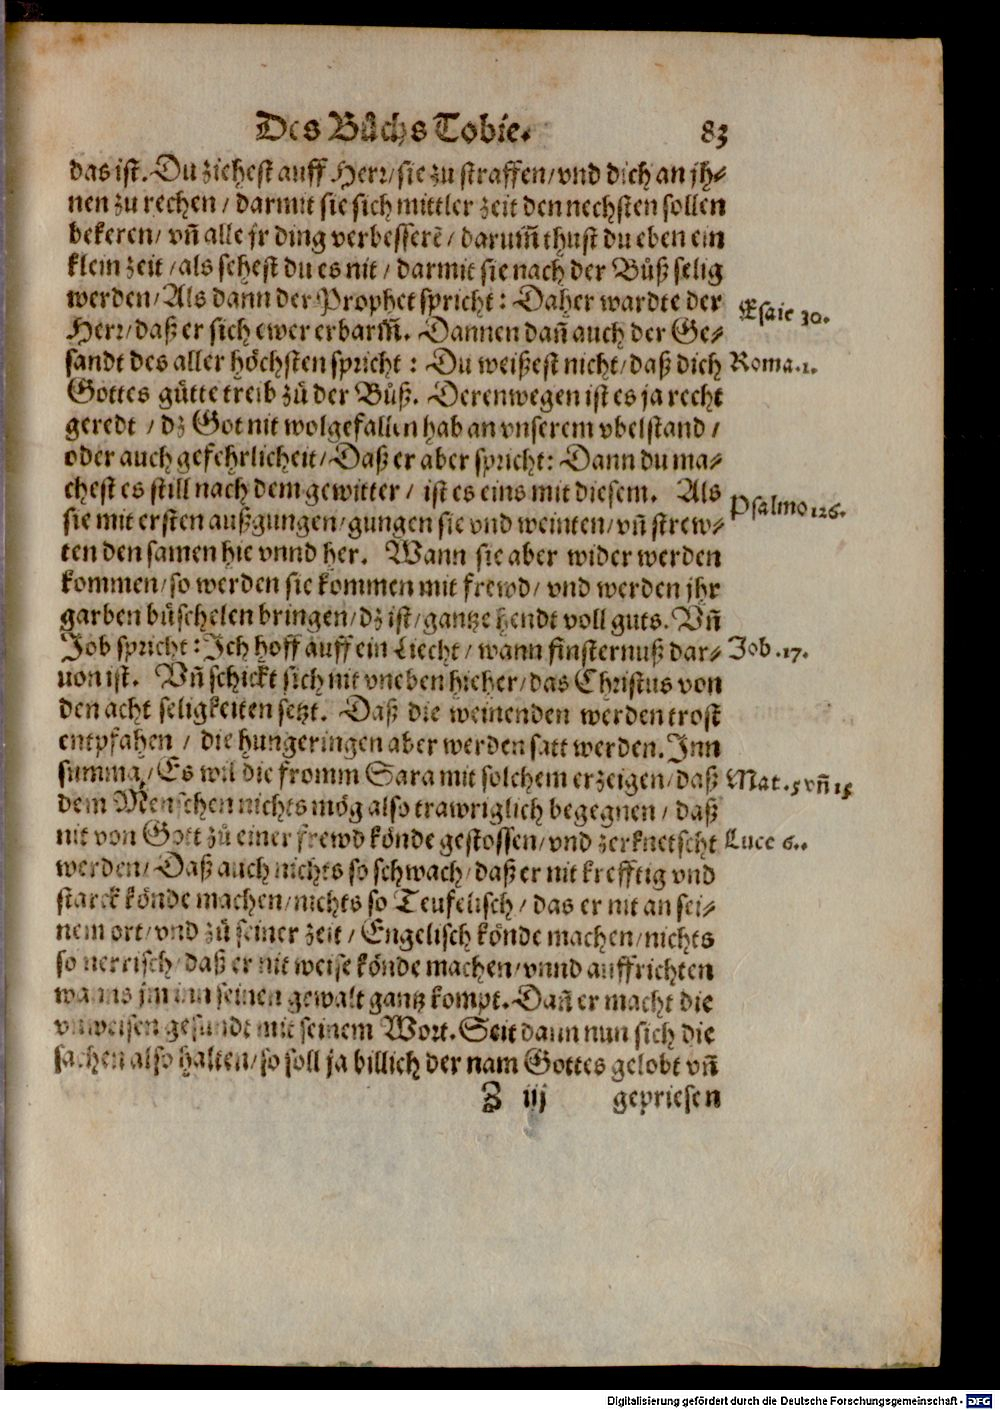 Des Bůchs Tobie. 83
das ist. Du ziehest auff Herr/ sie zu straffen/ vnd dich an jh-
nen zu rechen / darmit sie sich mittler zeit den nechsten sollen
bekeren/ vñ alle jr ding verbesserẽ / darum̃ thust du eben ein
klein zeit / als sehest du es nit / darmit sie nach der Bůß selig
werden/ Als dann der Prophet spricht : Daher wardte der
Esaie 30.
Herr/ daß er sich ewer erbarm̃. Dannen dañ auch der Ge-
sandt des aller höchsten spricht : Du weißest nicht/ daß dich
Roma. 1.
Gottes gütte treib zů der Bůß. Derenwegen ist es ja recht
geredt / dz Got nit wolgefallen hab an vnserem vbelstand /
oder auch gefehrlicheit/ Daß er aber spricht: Dann du ma-
chest es still nach dem gewitter / ist es eins mit diesem. Als
Psalmo 126.
sie mit ersten außgungen/ gungen sie vnd weinten/ vñ strew-
ten den samen hie vnnd her. Wann sie aber wider werden
kommen/ so werden sie kommen mit frewd/ vnd werden jhr
garben büschelen bringen/ dz ist/ gantze hendt voll guts. Vñ
Job spricht : Ich hoff auff ein Liecht/ wann finsternuß dar-
Job. 17.
uon ist. Vñ schickt sich nit vneben hieher/ das Christus von
den acht seligkeiten setzt. Daß die weinenden werden trost
entpfahen / die hungeringen aber werden satt werden. Inn
summa/ Es wil die fromm Sara mit solchem erzeigen/ daß
Mat. 5 vñ 15
dem Menschen nichts mög also trawriglich begegnen / daß
nit von Gott zů einer frewd könde gestossen/ vnd zerknetscht
Luce 6.
werden/ Daß auch nichts so schwach/ daß er nit krefftig vnd
starck könde machen/ nichts so Teufelisch / das er nit an sei-
nem ort/ vnd zů seiner zeit / Engelisch könde machen/ nichts
so nerrisch/ daß er nit weise könde machen/ vnnd auffrichten
wanns jm inn seinen gewalt gantz kompt. Dañ er macht die
vnweisen gesundt mit seinem Wort. Seit dann nun sich die
sachen also halten/ so soll ja billich der nam Gottes gelobt vñ
Z iij gepriesen
Digitalisierung gefördert durch die Deutsche Forschungsgemeinschaft - DFG